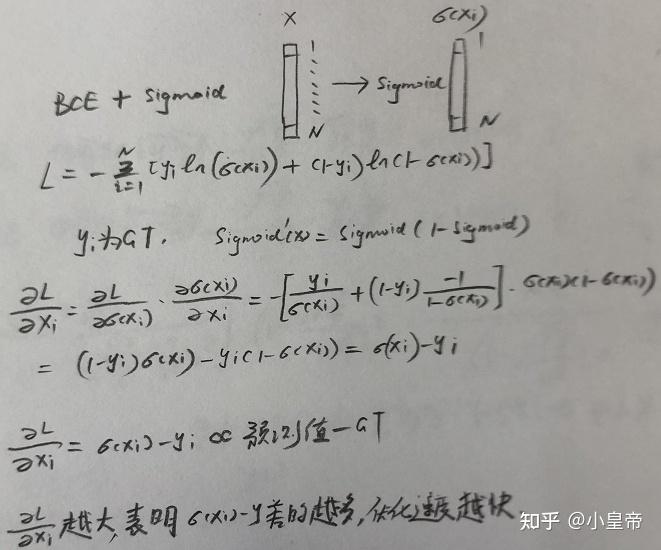 X σ(xi)
BCE + Sigmoid
1 N → Sigmoid 1 N
L = -∑_{i=1}^{N} [yi ln(σ(xi)) + (1-yi) ln(1-σ(xi))]
yi为GT. Sigmoid'(x) = Sigmoid (1-Sigmoid)
∂L/∂xi = ∂L/∂σ(xi) · ∂σ(xi)/∂xi = -[yi/σ(xi) + (1-yi) -1/(1-σ(xi))] · σ(xi)(1-σ(xi))
= (1-yi)σ(xi) - yi(1-σ(xi)) = σ(xi)-yi
∂L/∂xi = σ(xi)-yi ∝ 预测值-GT
∂L/∂xi 越大,表明 σ(xi)-y差的越多,优化速度越快
知乎 @小皇帝